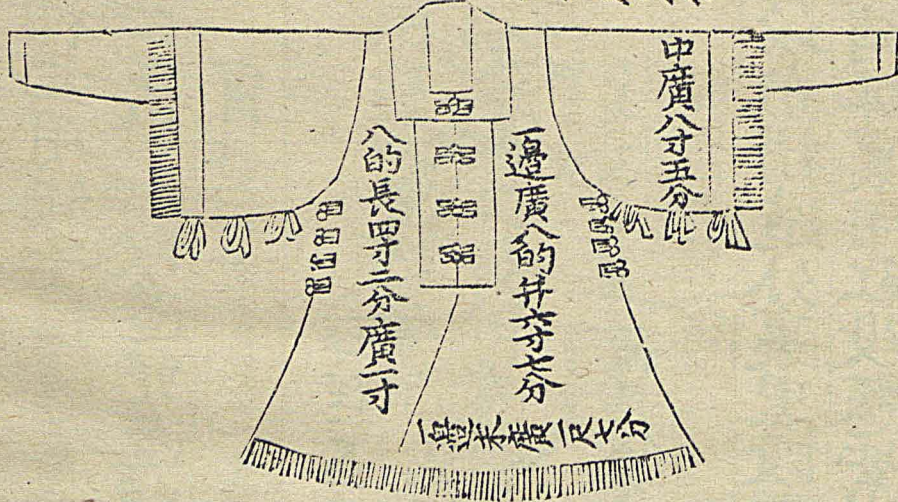 中廣八寸五分
一邊廣八的并六寸七分
八的長四寸二分廣一寸
一邊末廣一尺七分